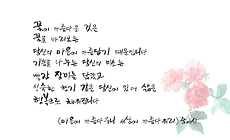 꽃이 아름다운 것은
꽃을 바라보는
당신의 마음이 아름답기 때문입니다
기쁨을 나누는 당신의 미소는
빨간 장미를 닮았고
은은한 향기 같은 당신이 있어 삶은
행복으로 채워집니다
(마음이 아름다우니 세상이 아름다워라) 중에서